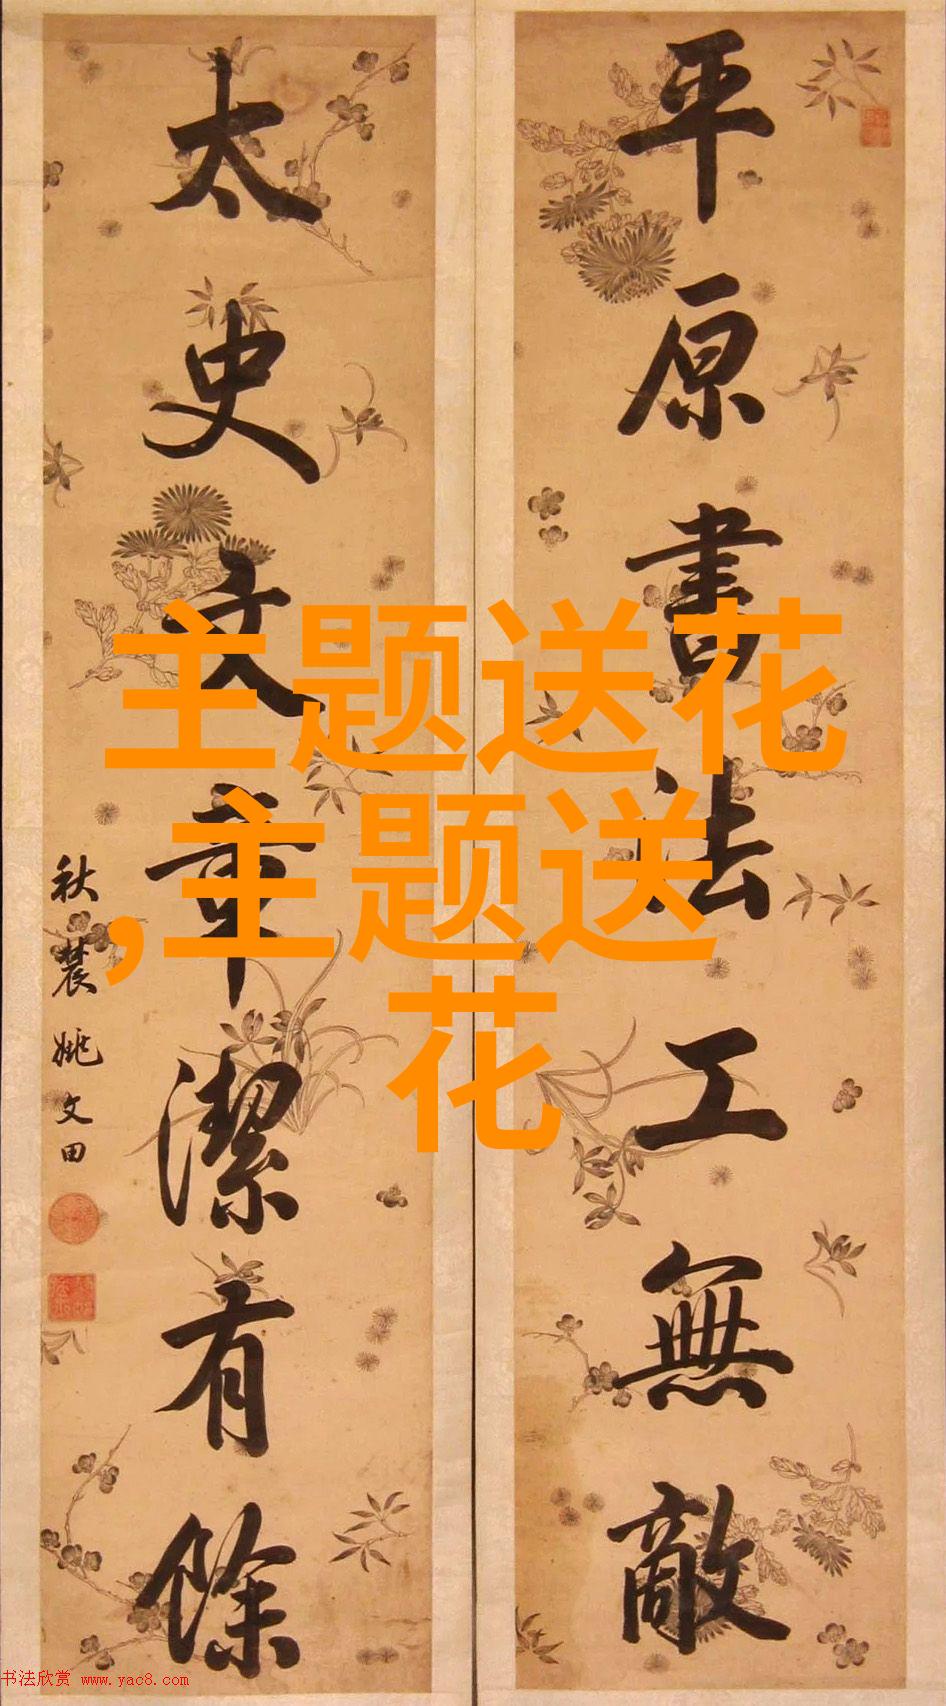 平原書法工無敵
太史文章潔有餘
秋農姚文田
主题送花
,主题送
花
书法欣赏 www.yac8.com